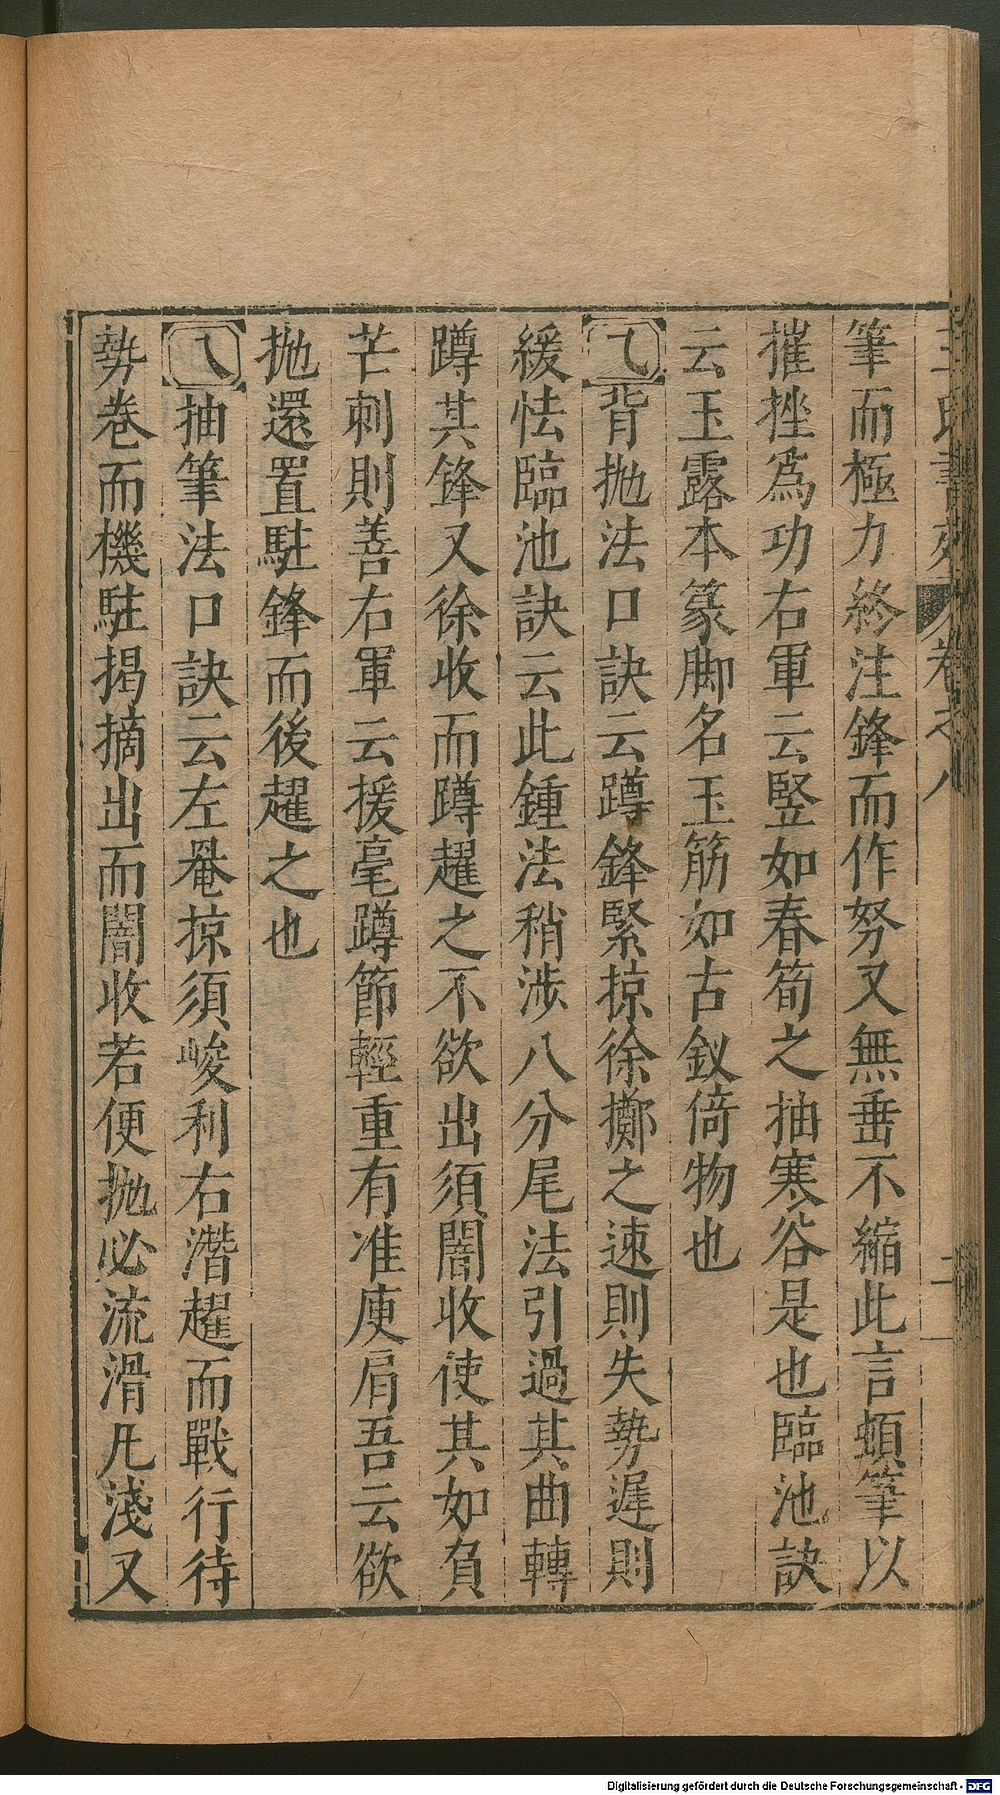 王氏書苑 卷之八 二
筆而極力終注鋒而作努又無垂不縮此言頓筆以
摧挫爲功右軍云竪如春筍之抽寒谷是也臨池訣
云玉露本篆脚名玉筋如古釵倚物也
乀背抛法口訣云蹲鋒緊掠徐擲之速則失勢遲則
緩怯臨池訣云此鍾法稍涉八分尾法引過其曲轉
蹲其鋒又徐收而蹲趯之不欲出須闇收使其如負
芒刺則善右軍云援毫蹲節輕重有准庾肩吾云欲
抛還置駐鋒而後趯之也
乁抽筆法口訣云左罨掠須峻利右潛趯而戰行待
勢卷而機駐揭摘出而闇收若便抛必流滑凡淺又
Digitalisierung gefördert durch die Deutsche Forschungsgemeinschaft - DFG